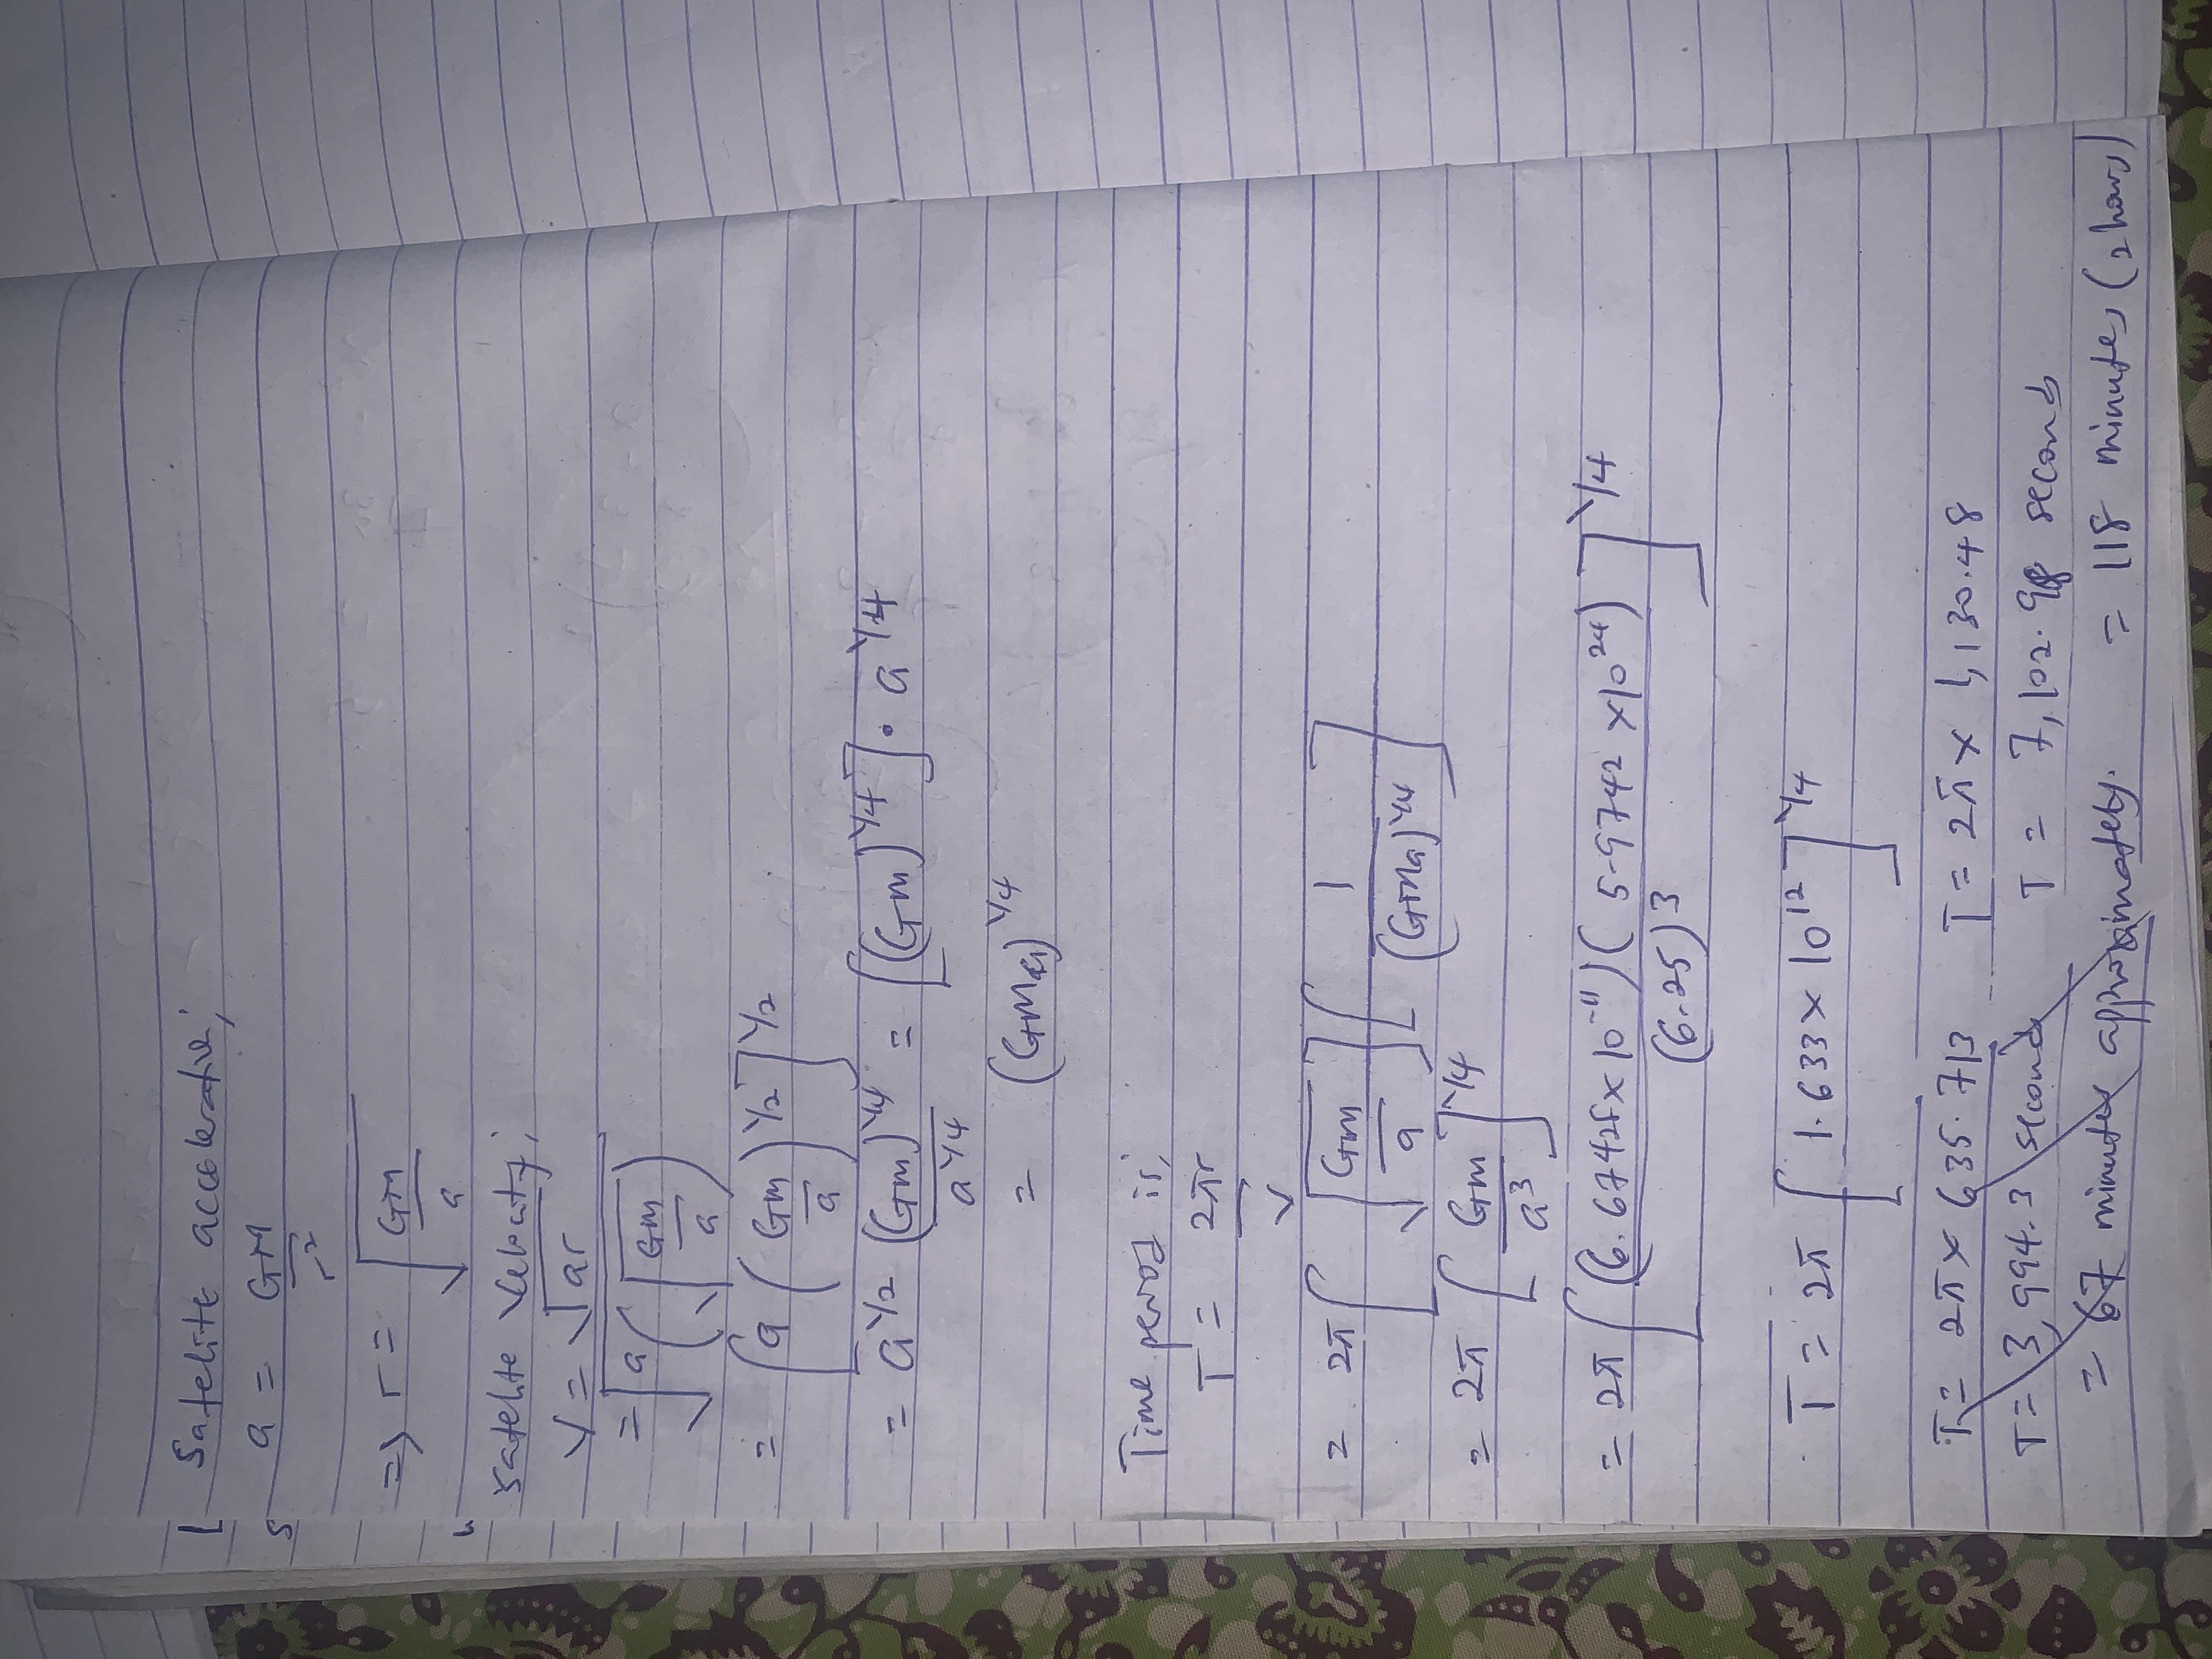 Satelite acceleration;
a = GM / r²
=> r = √(GM / a)
Satelite Velocity;
V = √ar
= √(a(√(GM / a)))
= [a (GM / a)^1/2]^1/2
= a^1/2 (GM)^1/4 / a^1/4 = [(GM)^1/4] · a^1/4
= (GMa)^1/4
Time period is;
T = 2πr / V
= 2π [√(GM / a)] [1 / (GMa)^1/4]
= 2π [GM / a³]^1/4
= 2π [(6.67428 x 10^-11)(5.9742 x 10^24) / (6.25)³]^1/4
T = 2π [1.633 x 10^12]^1/4
T = 2π x 635.713 T = 2π x 1,130.48
T = 3,994.3 seconds T = 7,102.98 seconds
= 67 minutes approximately. = 118 minutes (2 hours)